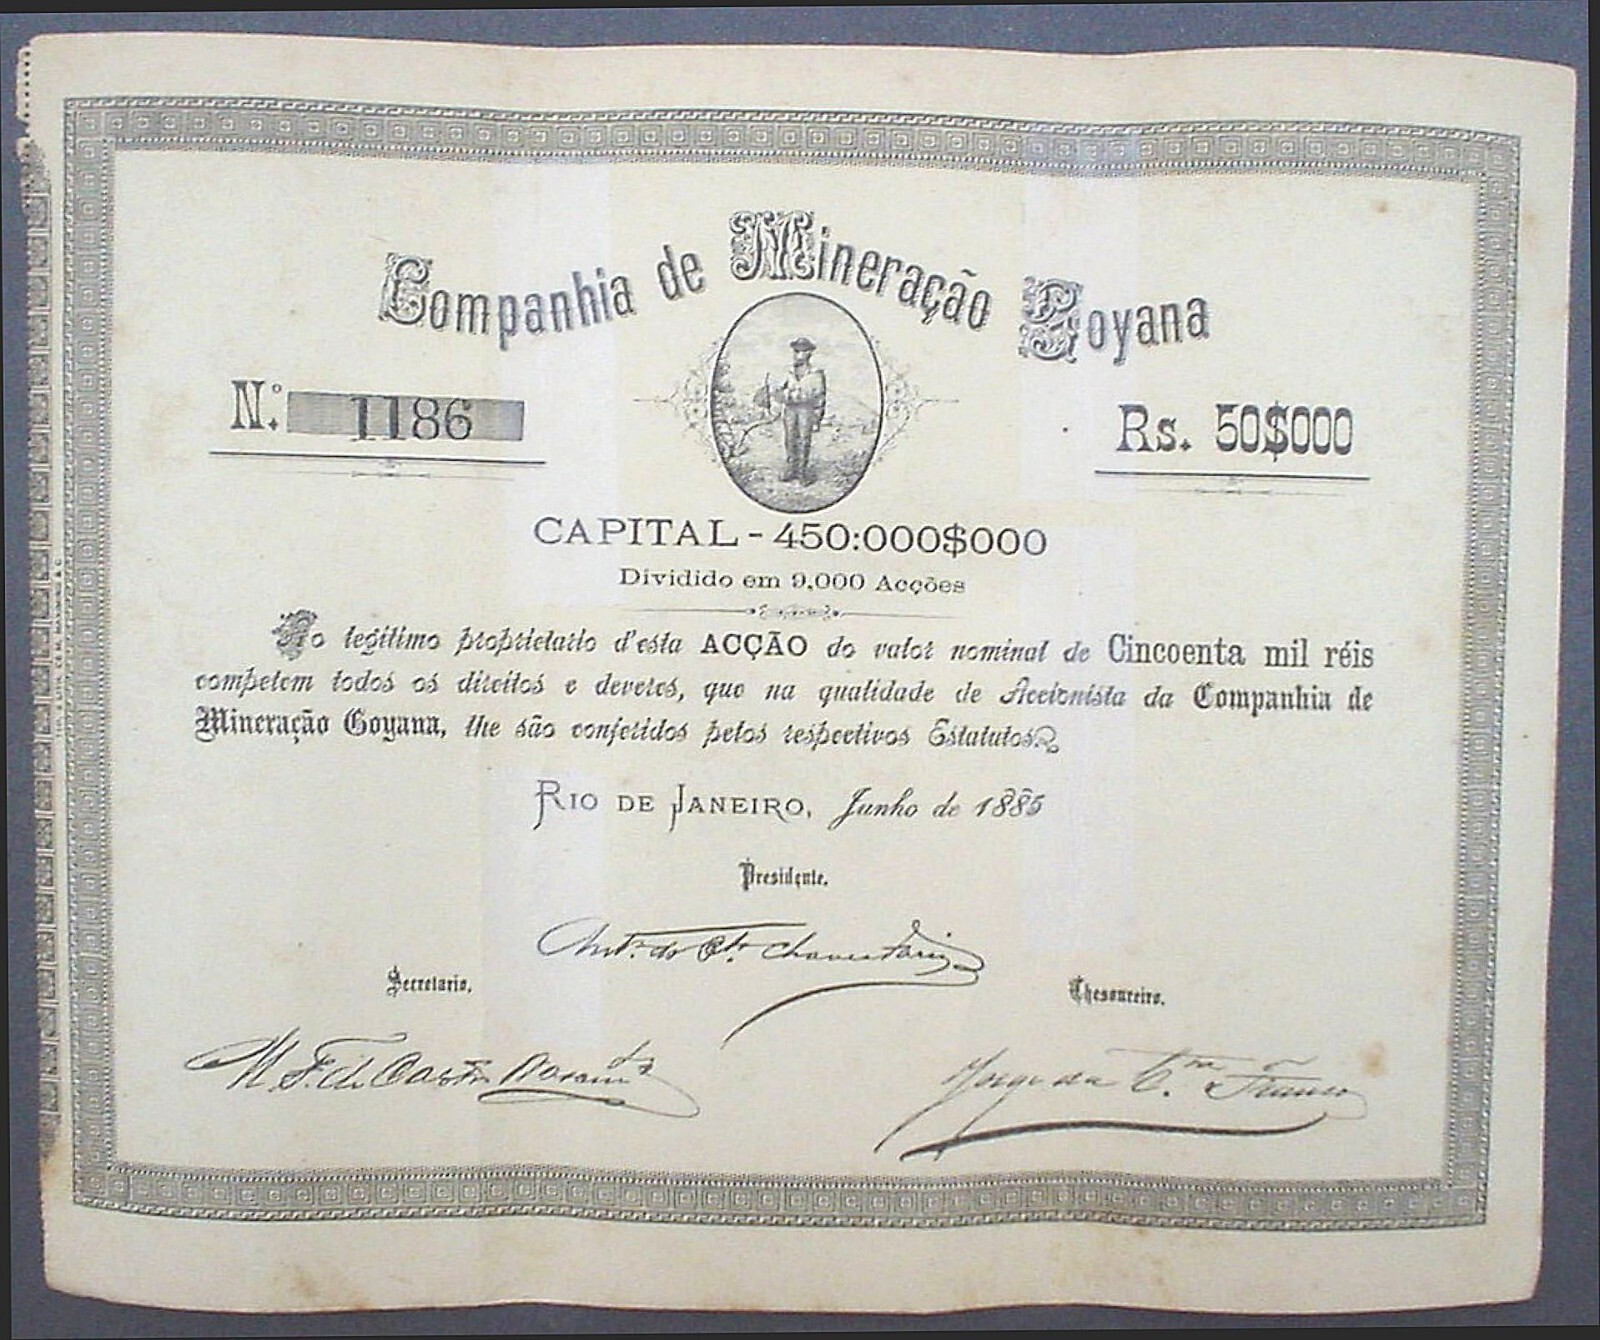 Companhia de Mineração Goyana
N.º 1186
Rs. 50$000
CAPITAL - 450:000$000
Dividido em 9,000 Acções
Ao legitimo proprietario d'esta ACÇÃO do valor nominal de Cincoenta mil réis
competem todos os direitos e deveres, que na qualidade de Accionista da Companhia de
Mineração Goyana, lhe são conferidos pelos respectivos Estatutos.
RIO DE JANEIRO, Junho de 1885
Presidente.
Secretario.
Thesoureiro.
M. F. de Castro
Franco